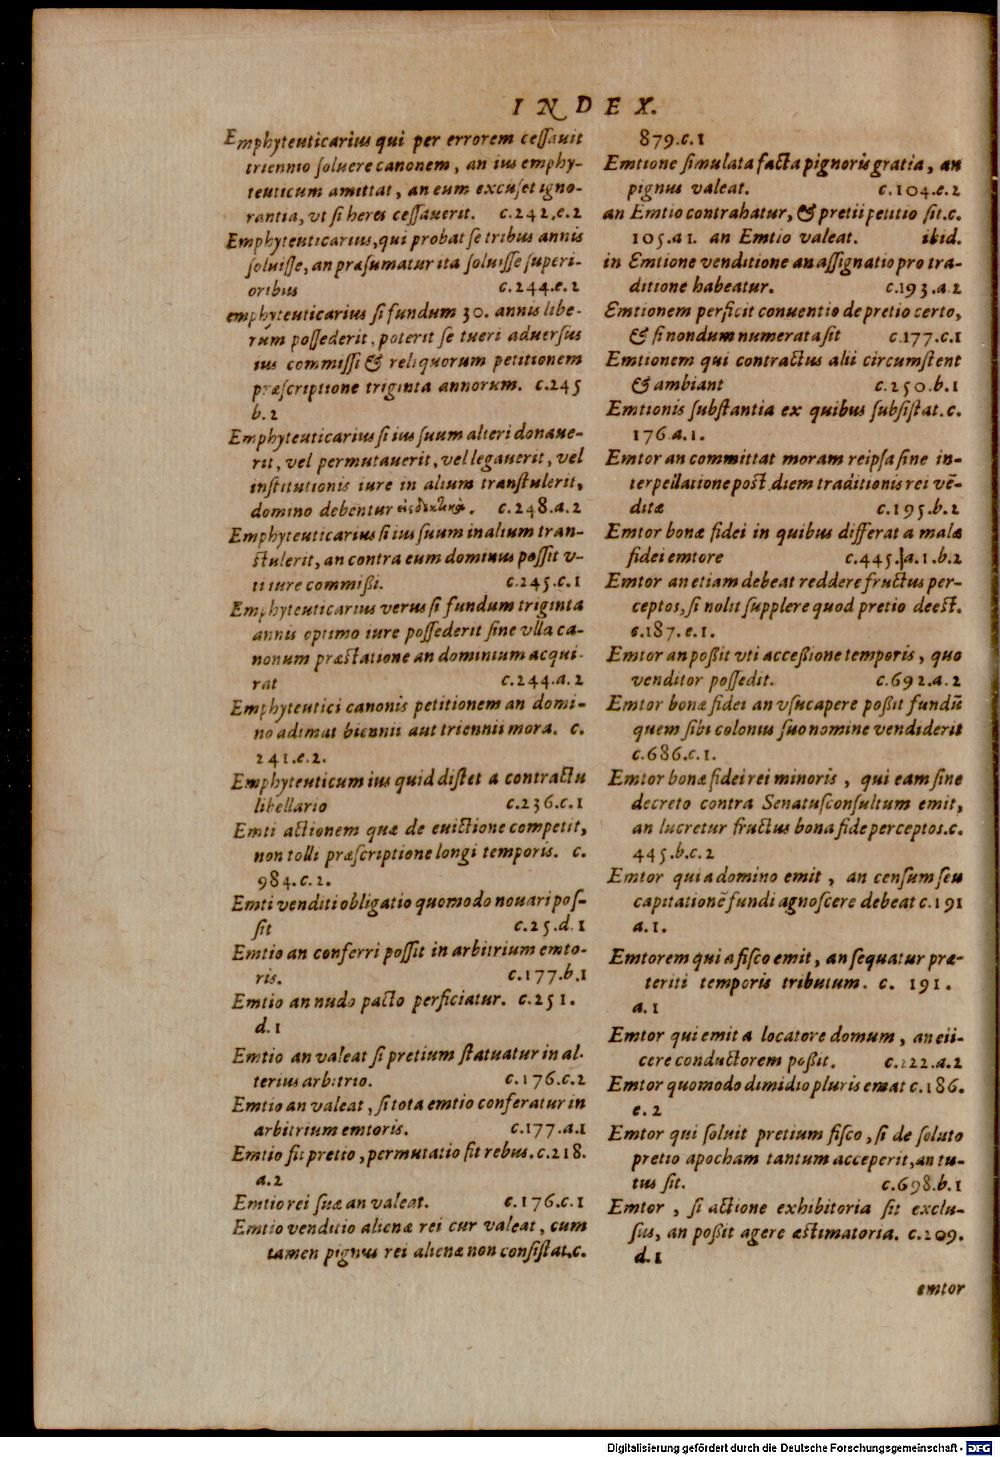 INDEX.
Emphyteuticarius qui per errorem ceſſauit
triennio ſoluere canonem, an ius emphy-
teuticum amittat, an eum excuſet igno-
rantia, vt ſi heres ceſſauerit. c.242.e.2
Emphyteuticarius, qui probat ſe tribus annis
ſoluiſſe, an præſumatur ita ſoluiſſe ſuperi-
oribus c.244.e.2
emphyteuticarius ſi fundum 30. annis libe-
rum poſſederit, poterit ſe tueri aduerſus
ius commiſſi & reliquorum petitionem
præſcriptione triginta annorum. c.245
b.2
Emphyteuticarius ſi ius ſuum alteri donaue-
rit, vel permutauerit, vel legauerit, vel
inſtitutionis iure in alium tranſtulerit,
domino debentur . c.248.a.2
Emphyteuticarius ſi ius ſuum in alium tran-
ſtulerit, an contra eum dominus poſſit v-
ti iure commißi. c.245.c.1
Emphyteuticarius verus ſi fundum triginta
annis optimo iure poſſederit ſine vlla ca-
nonum præſtatione an dominium acqui-
rat c.244.a.2
Emphyteutici canonis petitionem an domi-
no adimat biennii aut triennii mora. c.
241.e.2.
Emphyteuticum ius quid diſtet a contractu
libellario c.236.c.1
Emti actionem quæ de euictione competit,
non tolli præſcriptione longi temporis. c.
984.c.2.
Emti venditi obligatio quomodo nouari poſ-
ſit c.25.d.1
Emtio an conferri poſſit in arbitrium emto-
ris. c.177.b.1
Emtio an nudo pacto perficiatur. c.251.
d.1
Emtio an valeat ſi pretium ſtatuatur in al-
terius arbitrio. c.176.c.2
Emtio an valeat, ſi tota emtio conferatur in
arbitrium emtoris. c.177.a.1
Emtio ſit pretio, permutatio fit rebus. c.218.
a.2
Emtio rei ſuæ an valeat. c.176.c.1
Emtio venditio alienæ rei cur valeat, cum
tamen pignus rei alienæ non conſiſtat. c.
879.c.1
Emtione ſimulata facta pignoris gratia, an
pignus valeat. c.104.e.2
an Emtio contrahatur, & pretii petitio ſit. c.
105.a1. an Emtio valeat. ibid.
in Emtione venditione an aſſignatio pro tra-
ditione habeatur. c.193.a.2
Emtionem perficit conuentio de pretio certo,
& ſi nondum numerata ſit c.177.c.1
Emtionem qui contractus alii circumſtent
& ambiant c.250.b.1
Emtionis ſubſtantia ex quibus ſubſiſtat. c.
176.a.1.
Emtor an committat moram reipſa ſine in-
terpellatione poſt diem traditionis rei vē-
ditæ c.195.b.2
Emtor bonæ fidei in quibus differat a malæ
fidei emtore c.445.a.1.b.2
Emtor an etiam debeat reddere fructus per-
ceptos, ſi nolit ſupplere quod pretio deeſt.
c.187.e.1.
Emtor an poßit vti acceßione temporis, quo
venditor poſſedit. c.692.a.2
Emtor bonæ fidei an vſucapere poßit fundū
quem ſibi colonus ſuo nomine vendiderit
c.686.c.1.
Emtor bonæ fidei rei minoris, qui eam ſine
decreto contra Senatuſconſultum emit,
an lucretur fructus bona fide perceptos. c.
445.b.c.2
Emtor qui a domino emit, an cenſum ſeu
capitationē fundi agnoſcere debeat c.191
a.1.
Emtorem qui a fiſco emit, an ſequatur præ-
teriti temporis tributum. c. 191.
a.1
Emtor qui emit a locatore domum, an eii-
cere conductorem poßit. c.122.a.2
Emtor quomodo dimidio pluris emat c.186.
e.2
Emtor qui ſoluit pretium fiſco, ſi de ſoluto
pretio apocham tantum acceperit, an tu-
tus ſit. c.698.b.1
Emtor, ſi actione exhibitoria ſit exclu-
ſus, an poßit agere æſtimatoria. c.209.
d.1
emtor
Digitalisierung gefördert durch die Deutsche Forschungsgemeinschaft - DFG